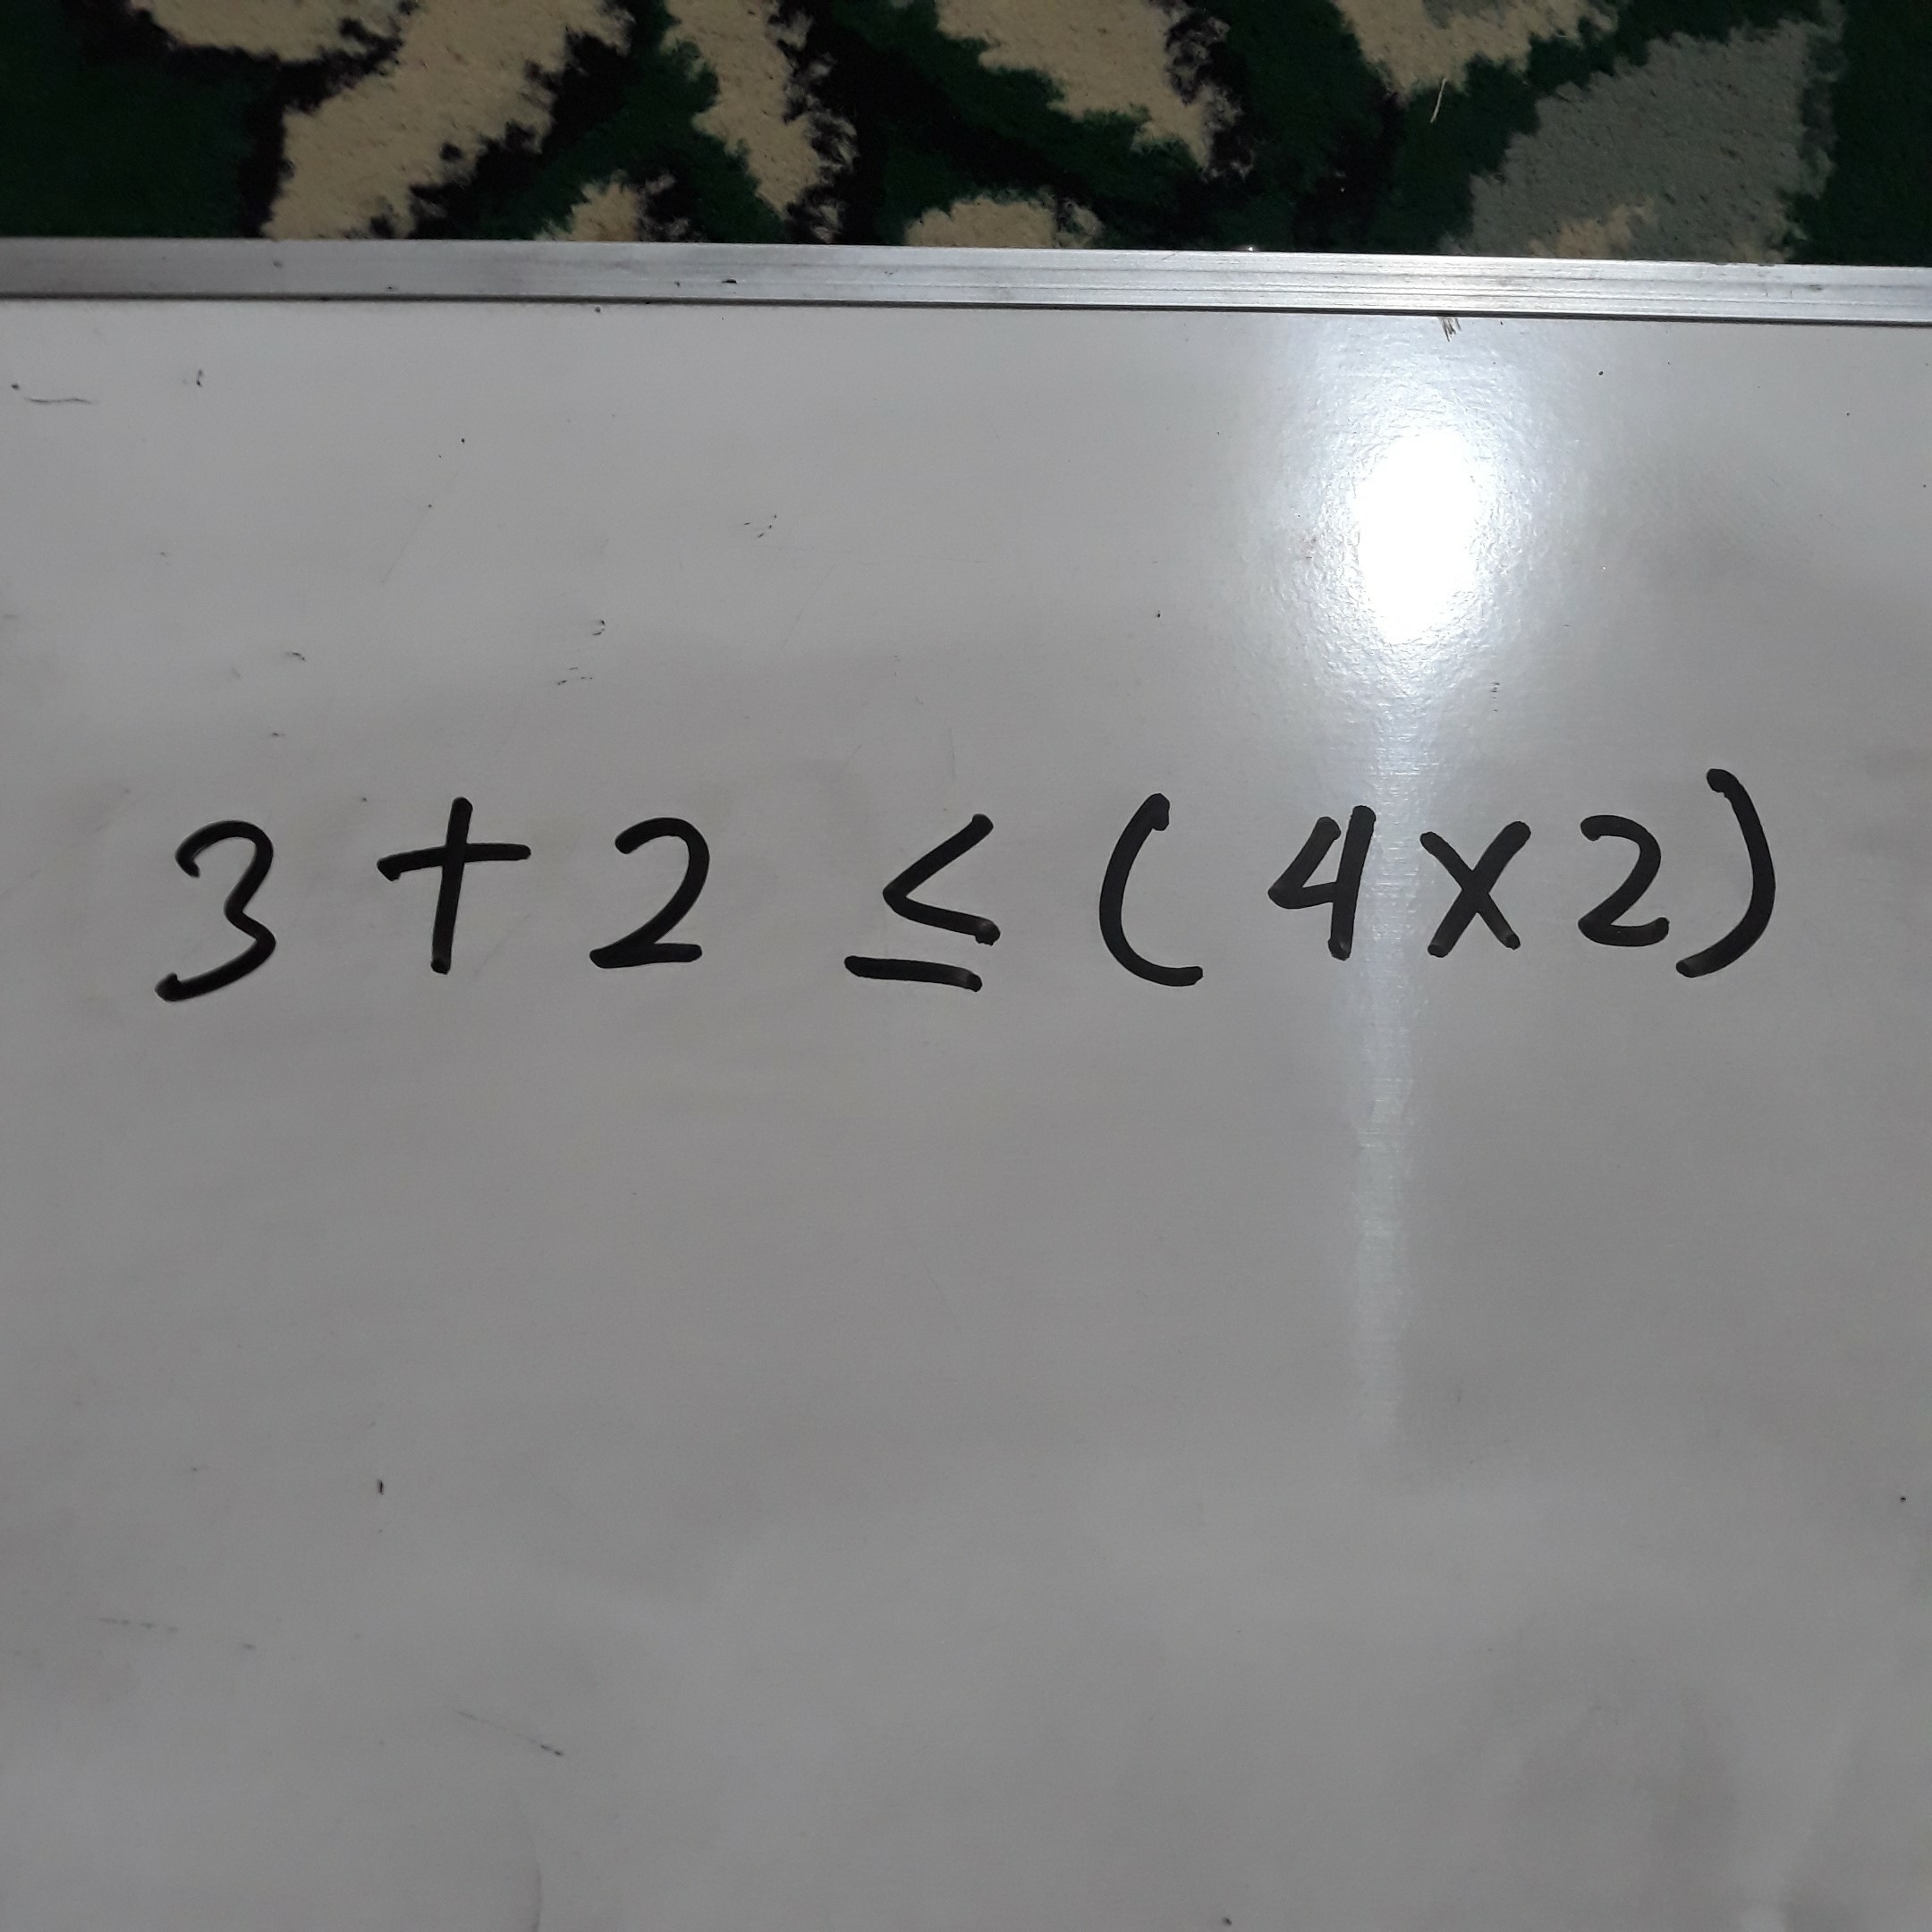 3 + 2 ≤ ( 4 × 2 )